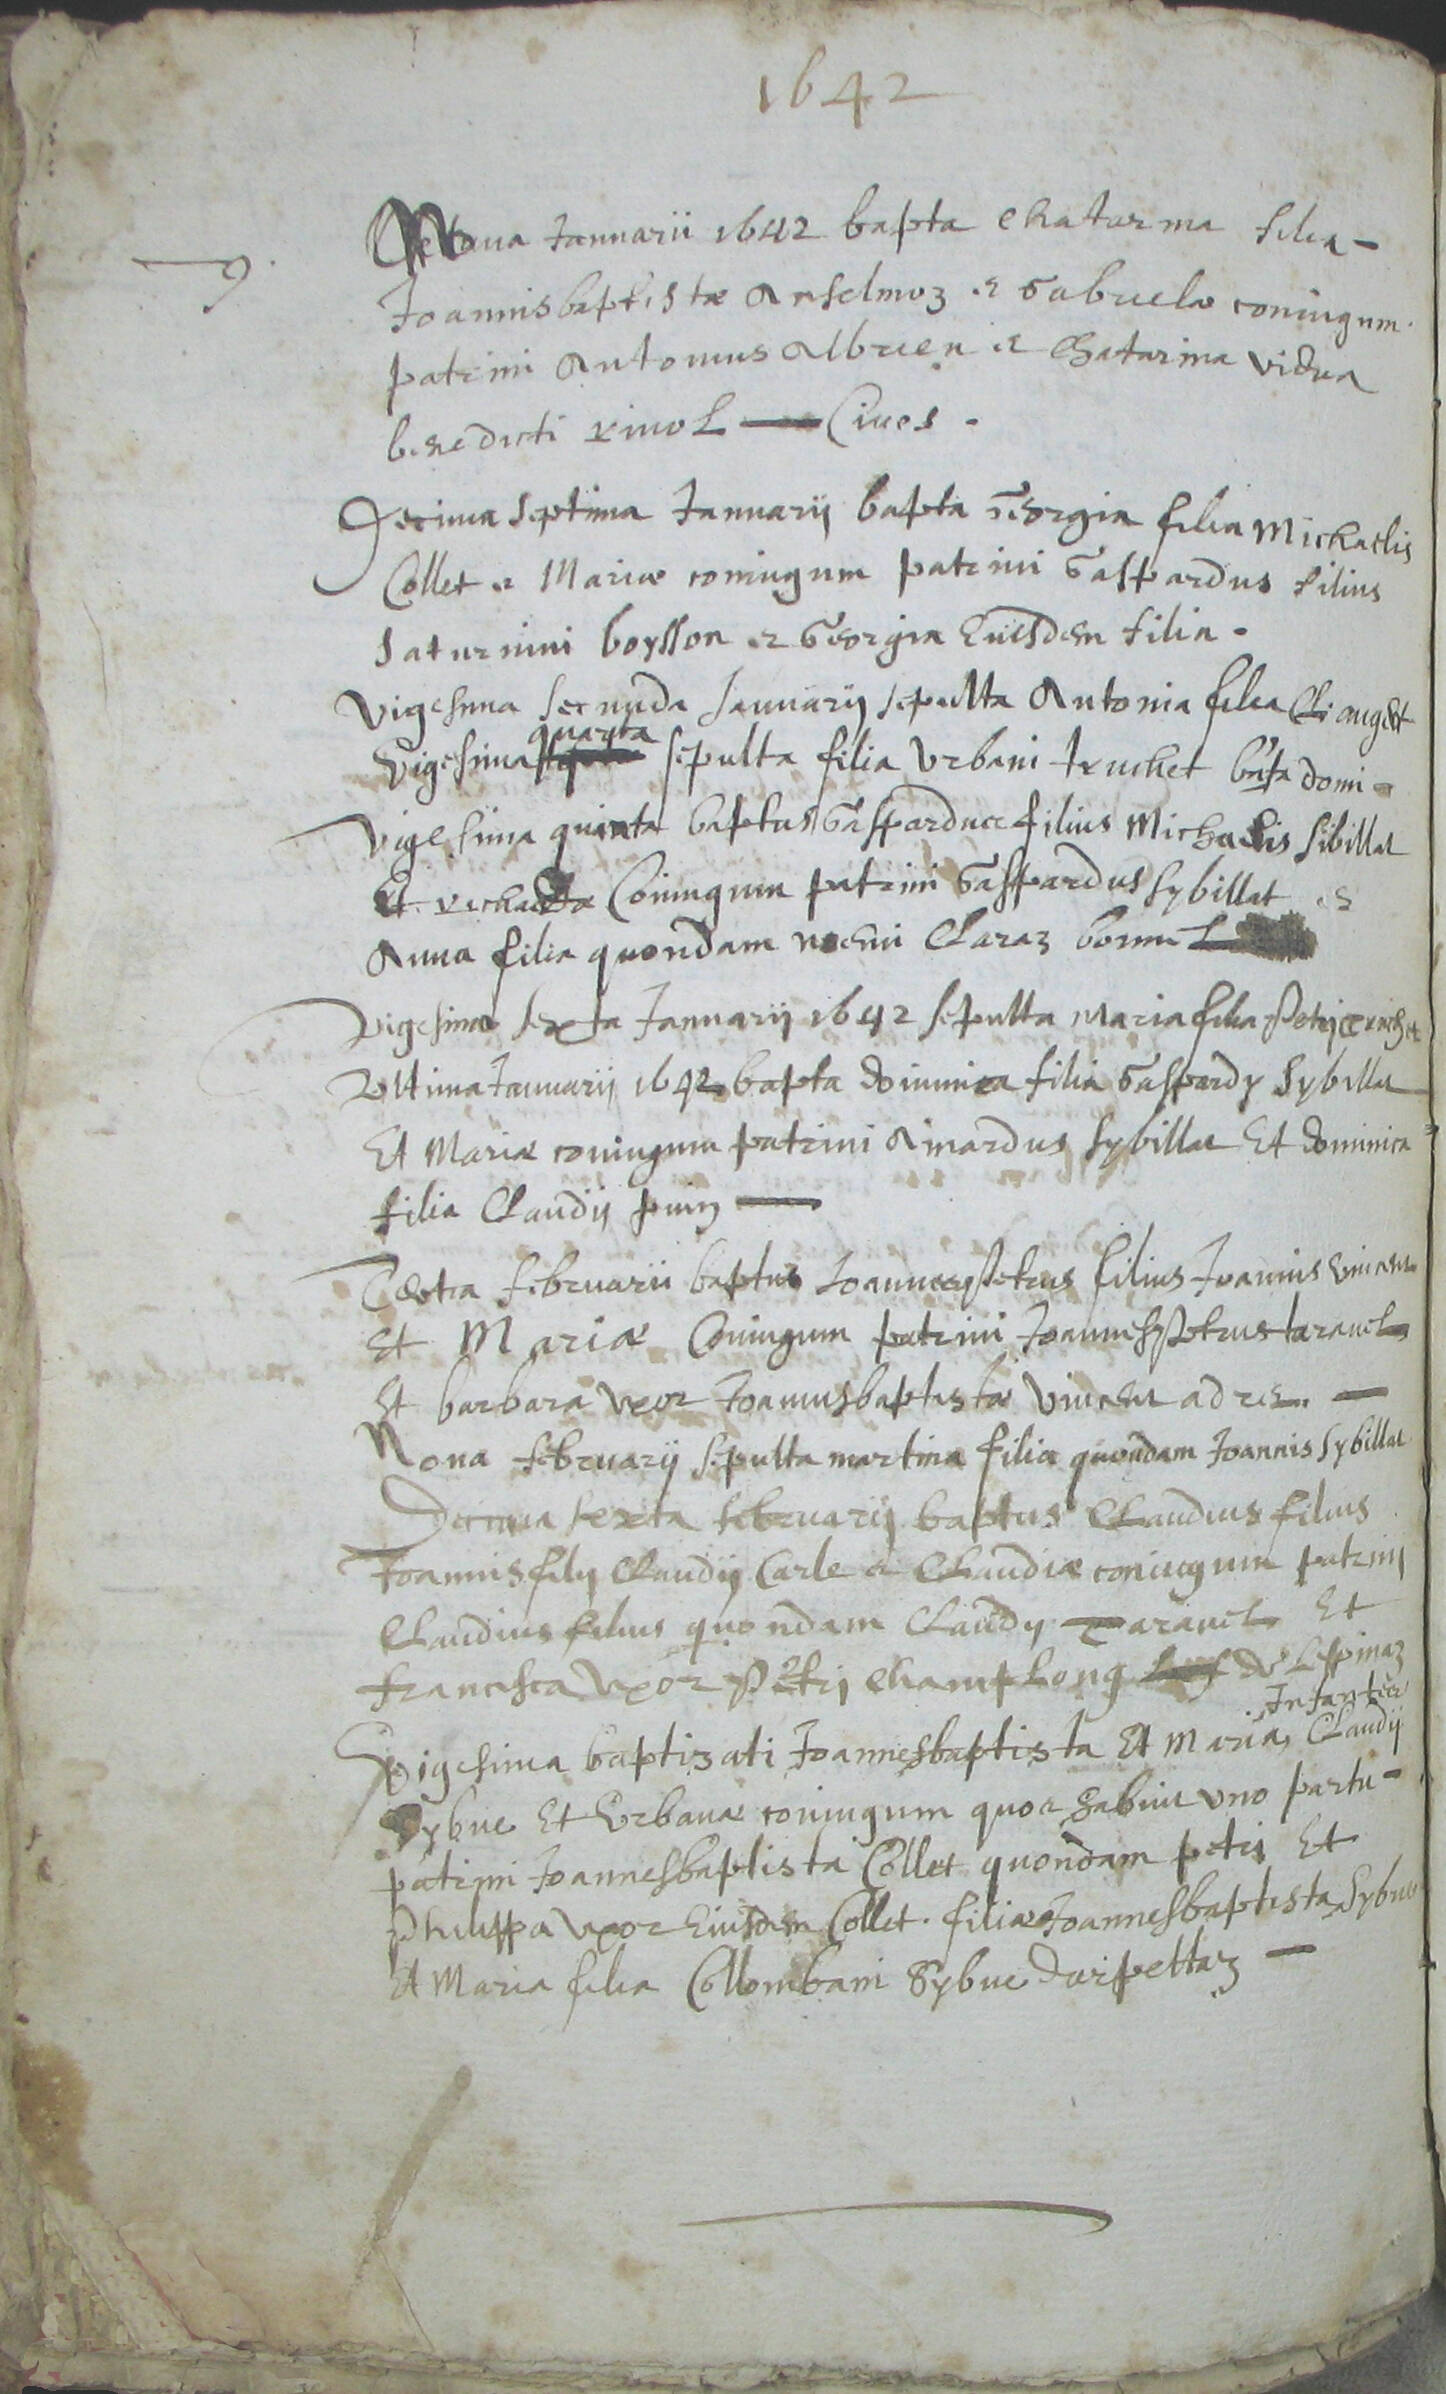 1642
9.
Octava Januarii 1642 bapta Chatarina filia -
Joannisbaptistæ Anselmoz et Gabrielæ coniugum.
patrini Antonius Albrien et Chatarina vidua
benedicti rivol — Cives -
Decima septima Januarij bapta Georgia filia Michaelis
Collet et Mariæ coniugum patrini Gaspardus filius
Saturnini boysson et Georgia Eiusdem filia -
Vigesima secunda Januarij sepulta Antonia filia Cli
Vigesima quarta sepulta filia Urbani truchet bnta domi -
Vigesima quinta baptus Gaspardus filius Michaelis Sibillat
Et Coniugum patrini Gaspardus Sybillat et
Anna filia quondam Claraz
Vigesima sexta Januarij 1642 sepulta Maria filia Petri
Ultima Januarij 1642 bapta dominica filia Gaspardy Sybillat
Et Mariæ coniugum patrini Aimardus Sybillat Et dominica
filia Claudij —
februarii baptus Joannes Petrus filius Joannis Vincent
Et Mariæ Coniugum patrini Joannes Petrus taravel
Et barbara Uxor Joannisbaptistæ Vincent —
Nona februarij sepulta martina filia quondam Joannis Sybillat
Decima sexta februarij baptus Claudius filius
Joannis filij Claudij Carle et Claudiæ coniugum patrinj
Claudius filius quondam Claudy Taravel Et
francisca Uxor Petrj Champlong de Lespinaz
Infantes
Vigesima baptizati Joannesbaptista Et Maria, Claudij
Sybue Et Urbanæ coniugum quos habuit uno partu -
patrini Joannesbaptista Collet quondam petri Et
Philippa Uxor Eiusdem Collet. filiæ Joannesbaptista Sybue
Et Maria filia Collombani Sybue darpettaz —